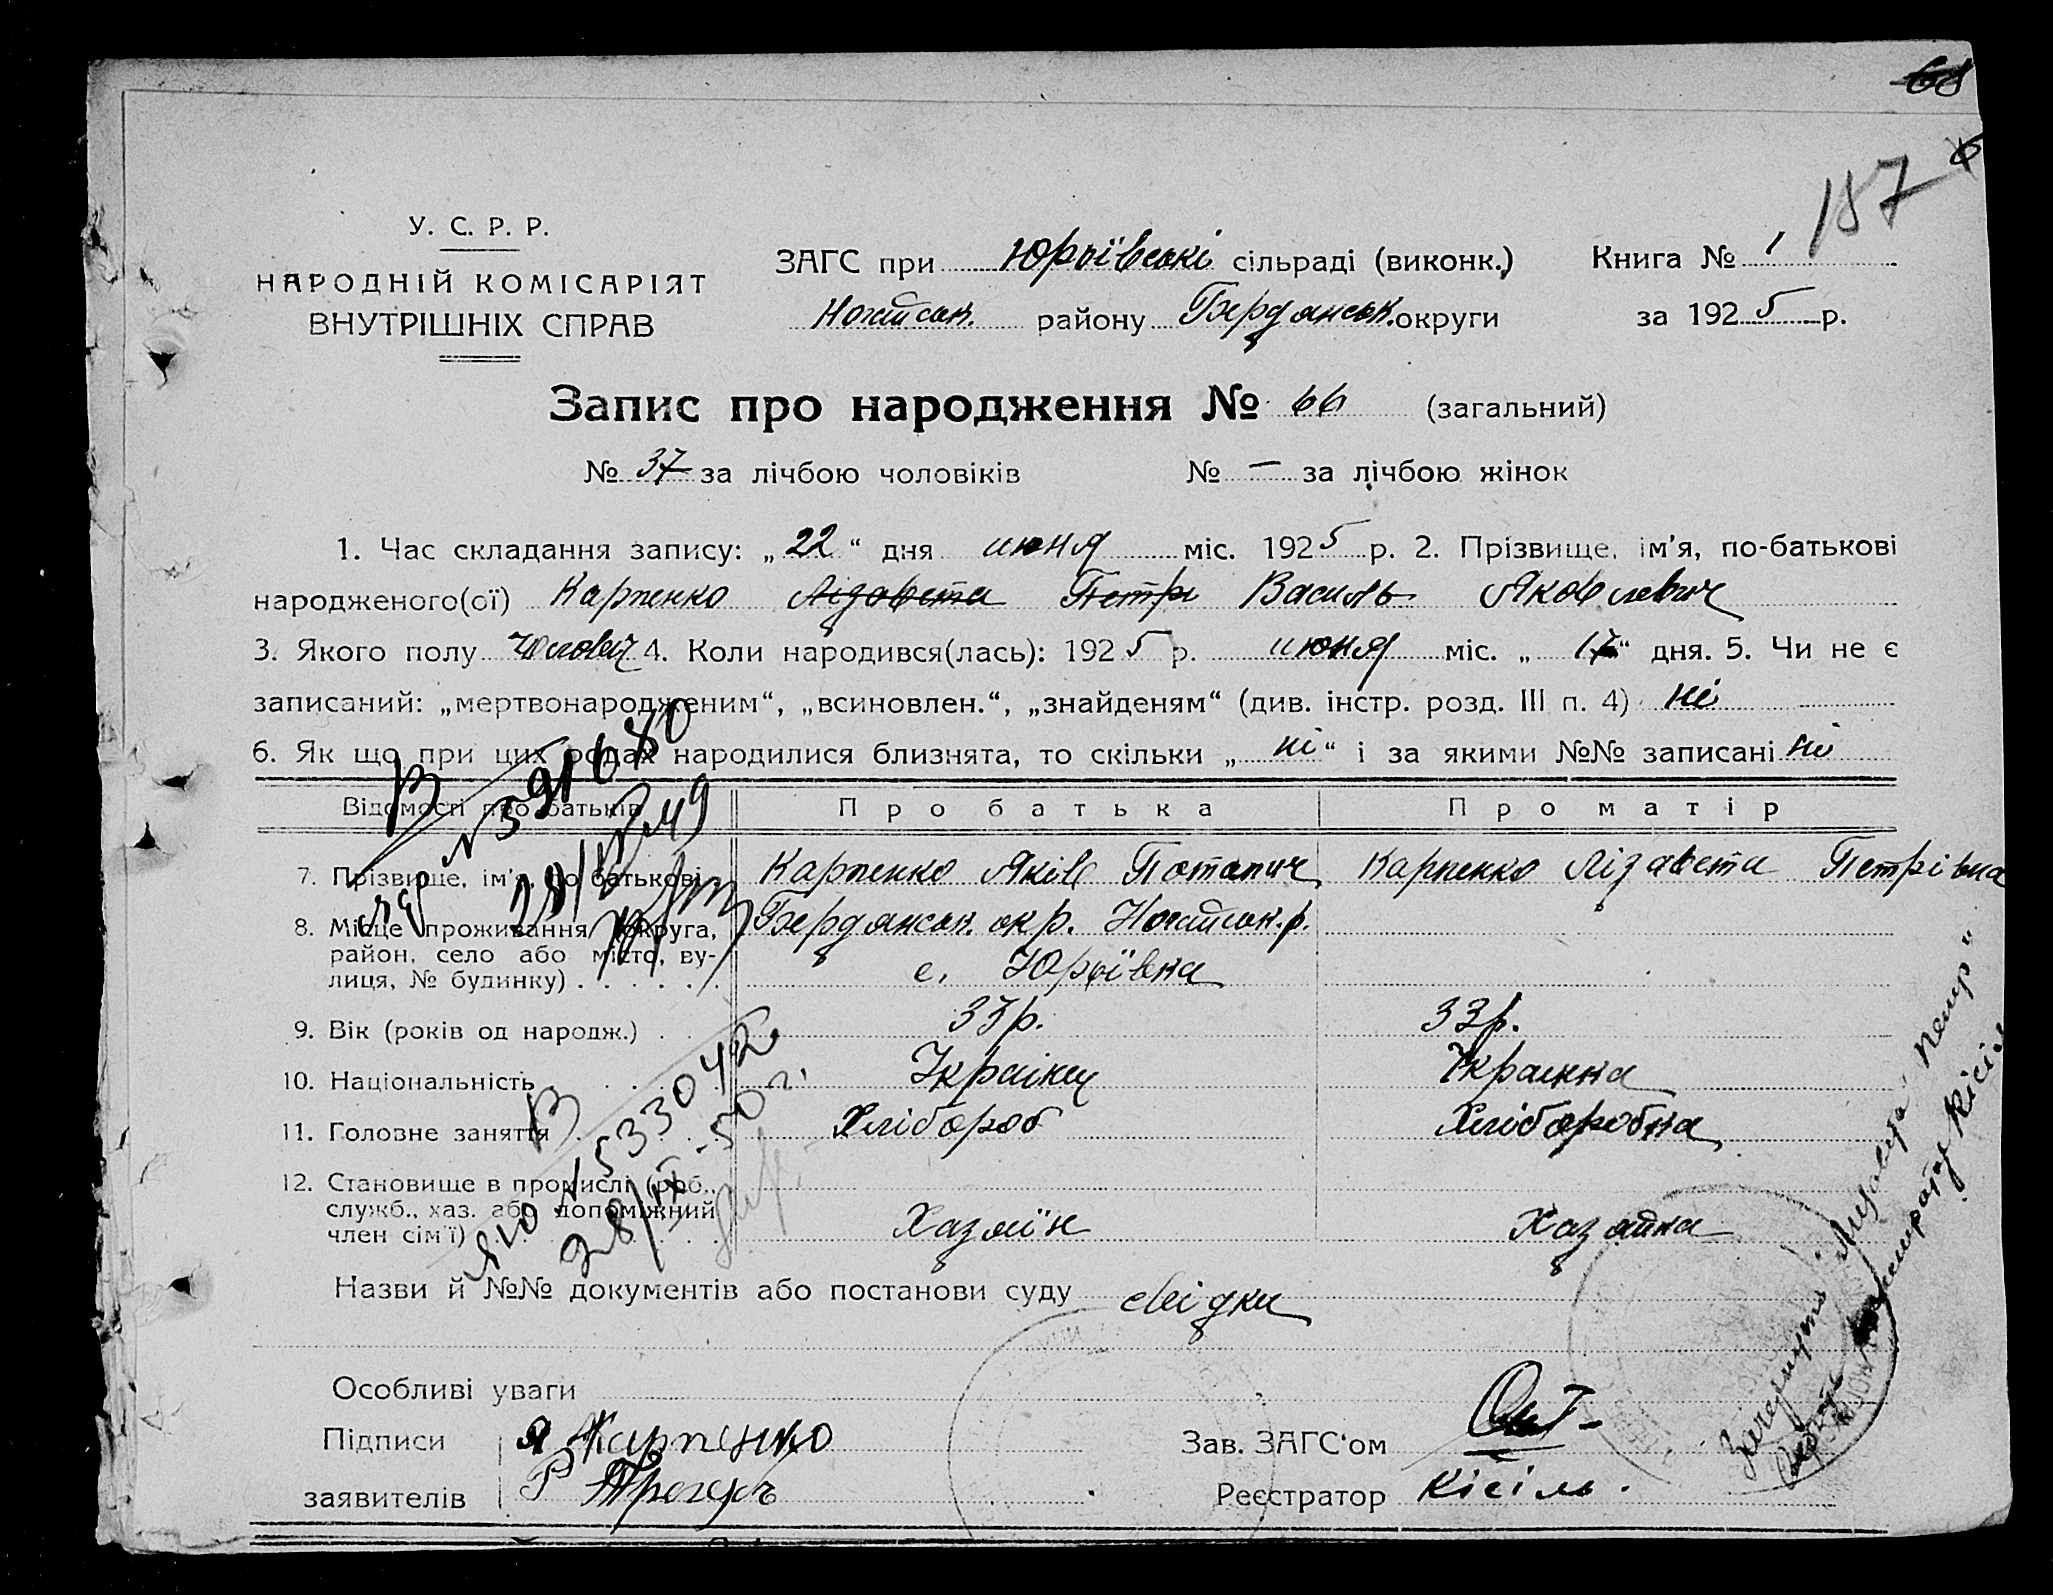 68
187
У. С. Р. Р.
НАРОДНІЙ КОМІСАРІЯТ
ВНУТРІШНІХ СПРАВ
ЗАГС при Юрьївські сільраді (виконк.)
району Бердянськ. округи
Книга № 1
за 1925 р.
Запис про народження № 66 (загальний)
№ 37 за лічбою чоловіків № — за лічбою жінок
1. Час складання запису: „22“ дня июня міс. 1925 р. 2. Прізвище, ім'я, по-батькові
народженого(ої) Карпенко Лізавета Петрі Василь Яковлевич
3. Якого полу Чоловіч 4. Коли народився(лась): 1925 р. июня міс. „17“ дня. 5. Чи не є
записаний: „мертвонародженим“, „всиновлен.“, „знайденям“ (див. інстр. розд. III п. 4) ні
6. Як що при цих родах народилися близнята, то скільки „ні“ і за якими №№ записані ні
Відомості про батьків Про батька Про матір
7. Прізвище, ім'я, по батькові. Карпенко Яків Потапич Карпенко Лізавета Петрівна
8. Місце проживання (округа, Бердянськ. окр.
район, село або місто, ву-
лиця, № будинку) с. Юрьївка
9. Вік (років од народж.) 33р. 33р.
10. Національність Українец Украинка
11. Головне заняття Хлібороб Хліборобка
12. Становище в промислі (роб.,
служб., хаз. або допоміжний
член сім'ї) Хазяїн Хазяйка
Назви й №№ документів або постанови суду свідки
Особливі уваги
Підписи Я Карпенко Зав. ЗАГС'ом
заявителів Реєстратор Кісіль.
№ 591680
№ 533042
28/IX-50 г.
Зачеркнуто „Лизавета Петр“
Кісіль